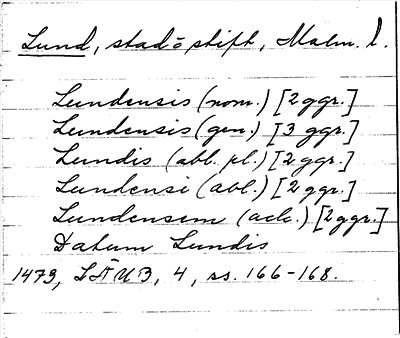 Lund, stad o stift, Malm. l.
Lundensis (nom.) [2 ggr.]
Lundensis (gen.) [3 ggr.]
Lundis (abl. pl.) [2 ggr.]
Lundensi (abl.) [2 ggr.]
Lundensem (ack.) [2 ggr.]
Datum Lundis
1473, LÄUB, 4, ss. 166-168.